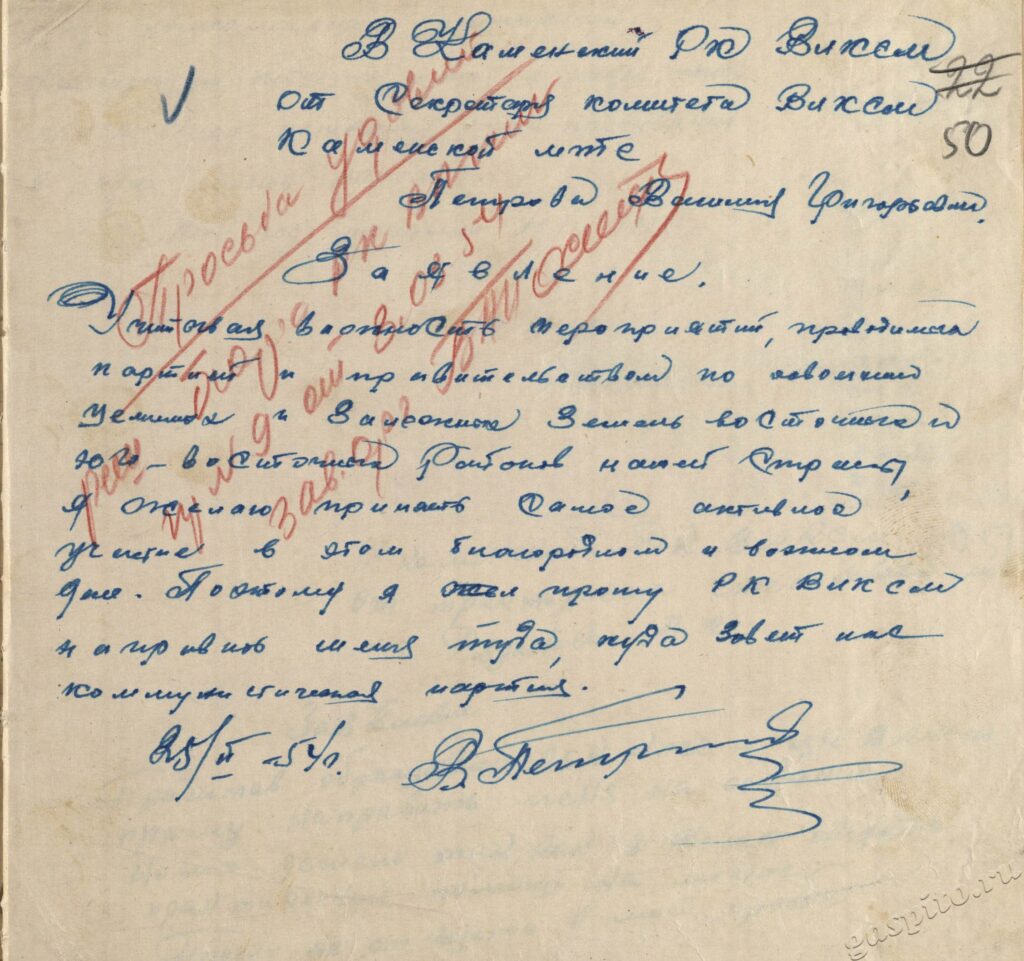 В Каменский РК ВЛКСМ
22
от Секретаря комитета ВЛКСМ
50
Каменской МТС
Петрова Василия Григорьевич.
Заявление.
Учитывая важность мероприятий, проводимых
партией и правительством по освоению
целинных и Залежных Земель восточных и
юго-восточных Районов нашей Страны,
я желаю принять Самое активное
участие в этом благородном и важном
деле. Поэтому я прошу РК ВЛКСМ
направить меня туда, куда Зовет нас
коммунистическая партия.
25/II-54 г.
В. Петров
Просьба удовл
РК ВЛКСМ
№ 9 от 8.03.54
Зав.
gaspito.ru